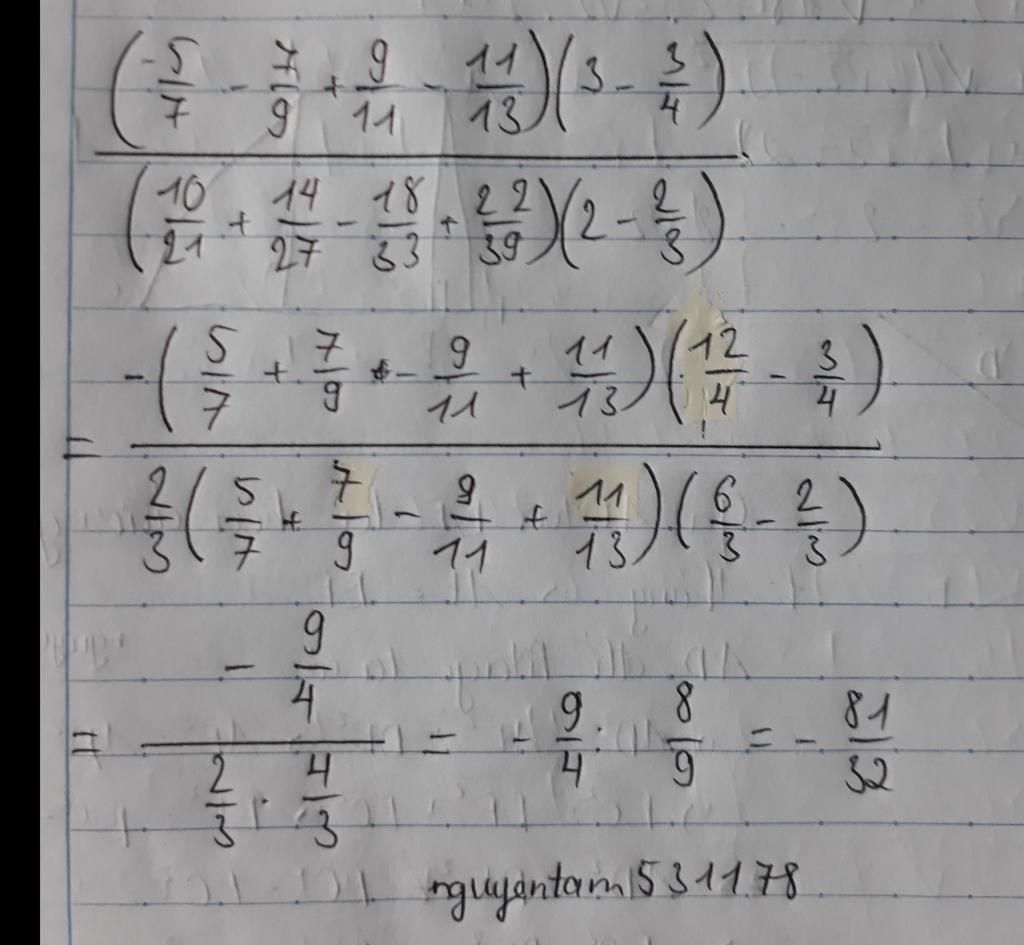 (-5/7 - 7/9 + 9/11 - 11/13)(3 - 3/4)
(10/21 + 14/27 - 18/33 + 22/39)(2 - 2/3)
= -(5/7 + 7/9 - 9/11 + 11/13)(12/4 - 3/4)
2/3(5/7 + 7/9 - 9/11 + 11/13)(6/3 - 2/3)
= - 9/4 / 2/3 . 4/3 = - 9/4 : 8/9 = - 81/32
nguyentam531178